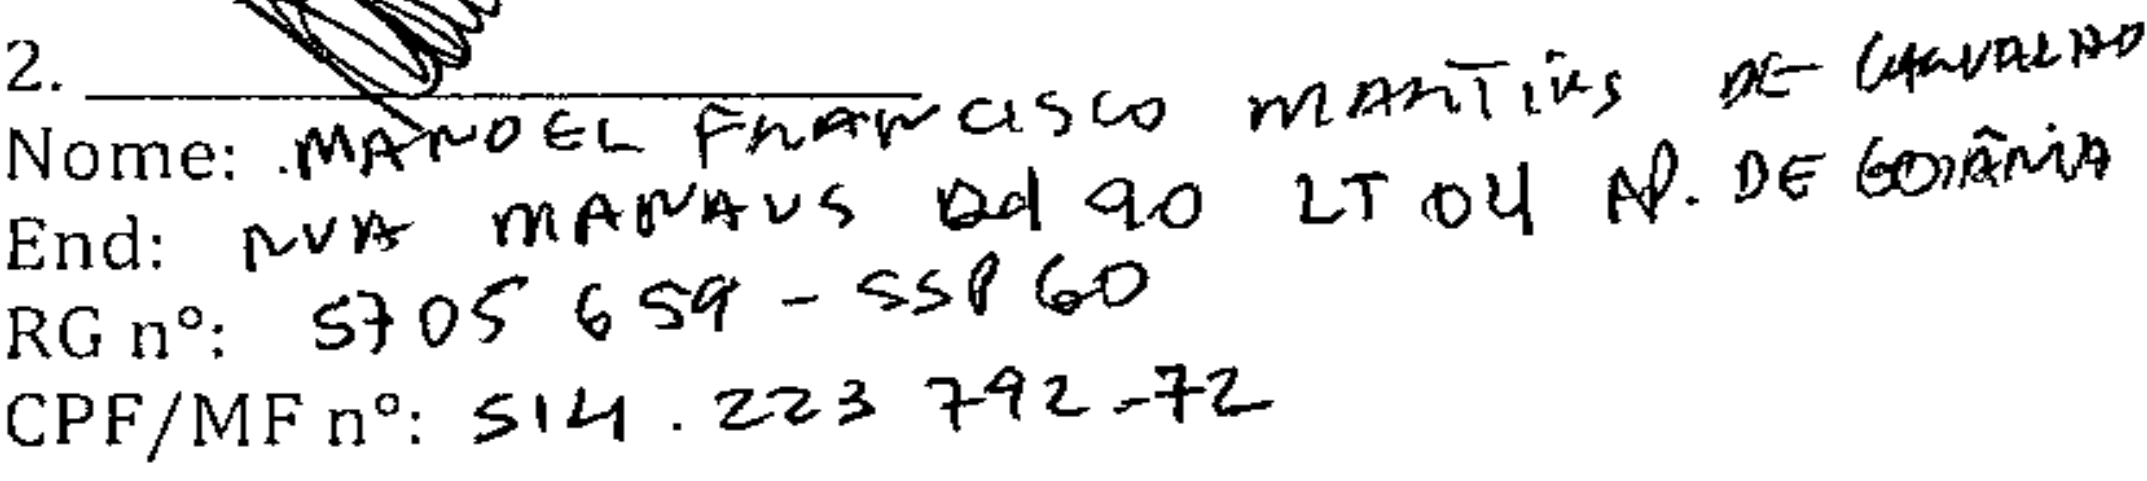 2.
Nome: MANOEL FRANCISCO MARTINS DE CARVALHO
End: RUA MANAUS Qd 90 LT 04 AP. DE GOIÂNIA
RG nº: 5705 659 - SSP GO
CPF/MF nº: 514.223 792-72